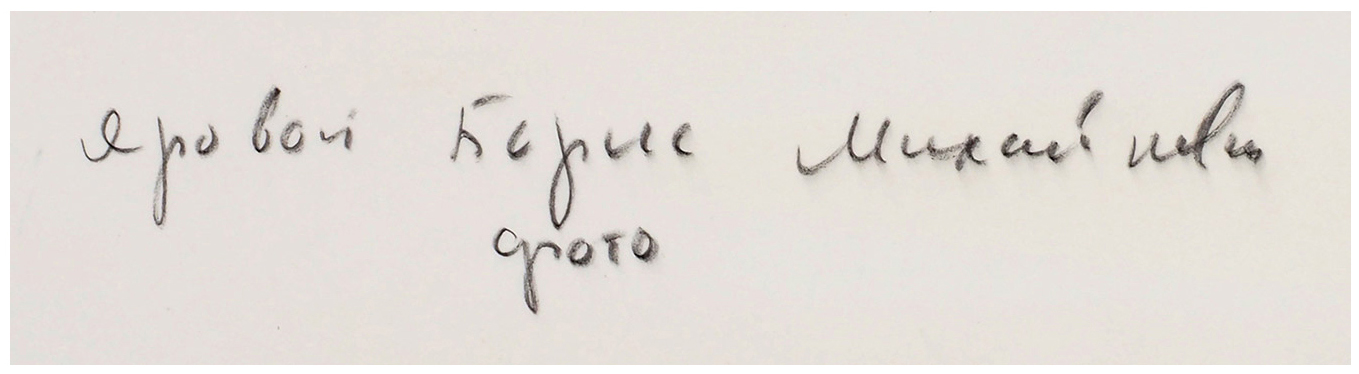 Яровой Борис Михайлович
фото